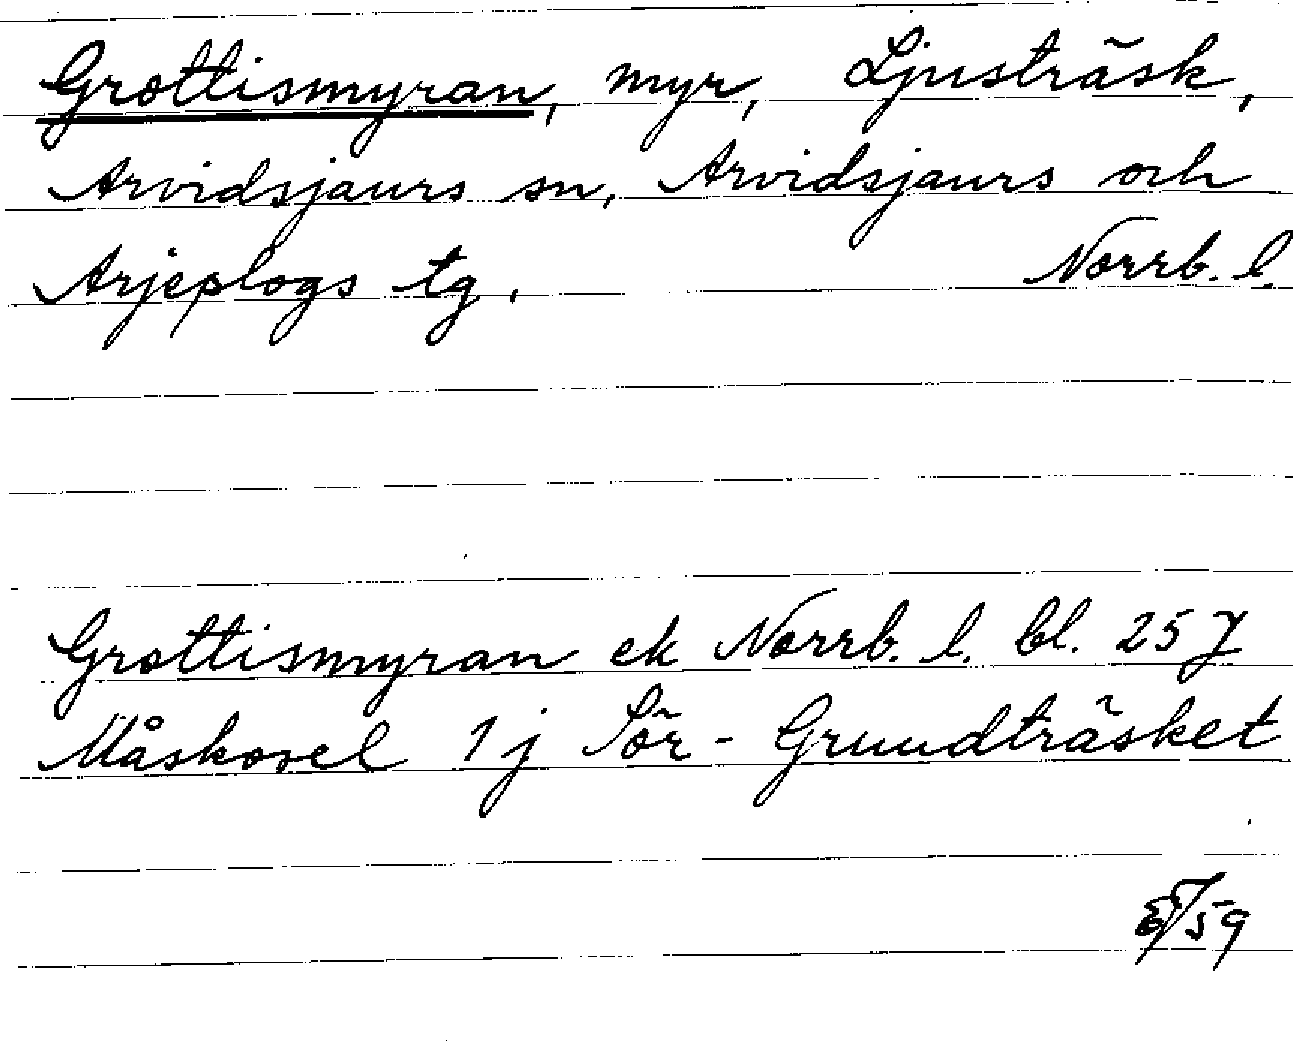 Grottismyran, myr, Ljusträsk,
Arvidsjaurs sn, Arvidsjaurs och
Arjeplogs tg. Norrb. l.
Grottismyran ek Norrb. l. bl. 25 J
Måskosel 1 j Sör-Grundträsket